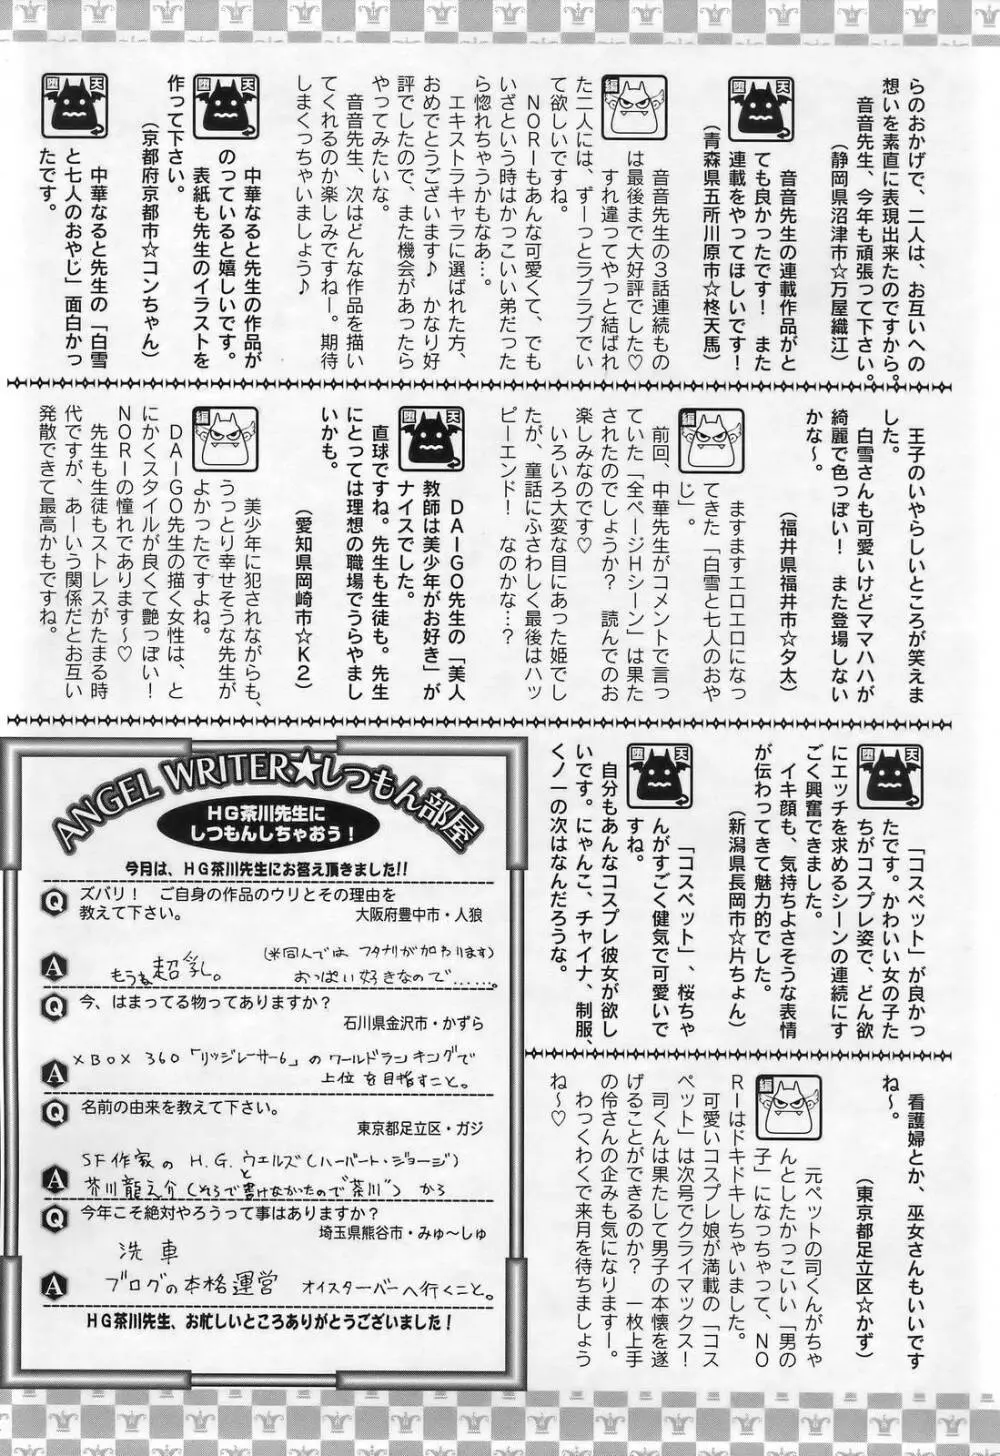 らのおかげで、二人は、お互いへの
想いを素直に表現出来たのですから。
音音先生、今年も頑張って下さい。
（静岡県沼津市☆万屋織江）
天
堕
音音先生の連載作品がと
ても良かったです！　また
連載をやってほしいです！
（青森県五所川原市☆柊天馬）
編
音音先生の３話連続もの
は最後まで大好評でした♡
すれ違ってやっと結ばれ
た二人には、ずーっとラブラブでい
て欲しいですね。
ＮＯＲＩもあんな可愛くて、でも
いざという時はかっこいい弟だった
ら惚れちゃうかもなあ…。
エキストラキャラに選ばれた方、
おめでとうございます♪　かなり好
評でしたので、また機会があったら
やってみたいな。
音音先生、次はどんな作品を描い
てくれるのか楽しみですねー。期待
しまくっちゃいましょう♪
天
堕
中華なると先生の作品が
のっていると嬉しいです。
表紙も先生のイラストを
作って下さい。
（京都府京都市☆コンちゃん）
天
堕
中華なると先生の「白雪
と七人のおやじ」面白かっ
たです。
王子のいやらしいところが笑えま
した。
白雪さんも可愛いけどママハハが
綺麗で色っぽい！　また登場しない
かな～。
（福井県福井市☆夕太）
編
ますますエロエロになっ
てきた「白雪と七人のおや
じ」。
前回、中華先生がコメントで言っ
ていた「全ページＨシーン」は果た
されたのでしょうか？　読んでのお
楽しみなのです♡
いろいろ大変な目にあった姫でし
たが、童話にふさわしく最後はハッ
ピーエンド！　なのかな…？
天
堕
ＤＡＩＧＯ先生の「美人
教師は美少年がお好き」が
ナイスでした。
直球ですね。先生も生徒も。先生
にとっては理想の職場でうらやまし
いかも。
（愛知県岡崎市☆Ｋ２）
編
美少年に犯されながらも、
うっとり幸せそうな先生が
よかったですよね。
ＤＡＩＧＯ先生の描く女性は、と
にかくスタイルが良くて艶っぽい！
ＮＯＲＩの憧れであります～♡
先生も生徒もストレスがたまる時
代ですが、あーいう関係だとお互い
発散できて最高かもですね。
天
堕
「コスペット」が良かっ
たです。かわいい女の子た
ちがコスプレ姿で、どん欲
にエッチを求めるシーンの連続にす
ごく興奮できました。
イキ顔も、気持ちよさそうな表情
が伝わってきて魅力的でした。
（新潟県長岡市☆片ちょん）
天
堕
「コスペット」、桜ちゃ
んがすごく健気で可愛いで
すね。
自分もあんなコスプレ彼女が欲し
いです。にゃんこ、チャイナ、制服、
くノ一の次はなんだろうな。
看護婦とか、巫女さんもいいです
ね～。
（東京都足立区☆かず）
編
元ペットの司くんがちゃ
んとしたかっこいい「男の
子」になっちゃって、ＮＯ
ＲＩはドキドキしちゃいました。
可愛いコスプレ娘が満載の「コス
ペット」は次号でクライマックス！
司くんは果たして男子の本懐を遂
げることができるのか？　一枚上手
の伶さんの企みも気になりますー。
わっくわくで来月を待ちましょう
ね～♡
ANGEL WRITER★しつもん部屋
ＨＧ茶川先生に
しつもんしちゃおう！
今月は、ＨＧ茶川先生にお答え頂きました!!
Q ズバリ！　ご自身の作品のウリとその理由を
教えて下さい。　大阪府豊中市・人狼
(※同人では フタナリが加わります)
A もうね 超乳。 おっぱい好きなので……。
Q 今、はまってる物ってありますか？
石川県金沢市・かずら
A XBOX 360「リッジレーサー6」の ワールドランキングで
上位を目指すこと。
Q 名前の由来を教えて下さい。
東京都足立区・ガジ
A SF作家の H.G.ウェルズ(ハーバート・ジョージ)
と
芥川龍之介(そらで書けなかったので"茶川") から
Q 今年こそ絶対やろうって事はありますか？
埼玉県熊谷市・みゅ～しゅ
洗車
A ブログの本格運営　オイスターバーへ行くこと。
ＨＧ茶川先生、お忙しいところありがとうございました！